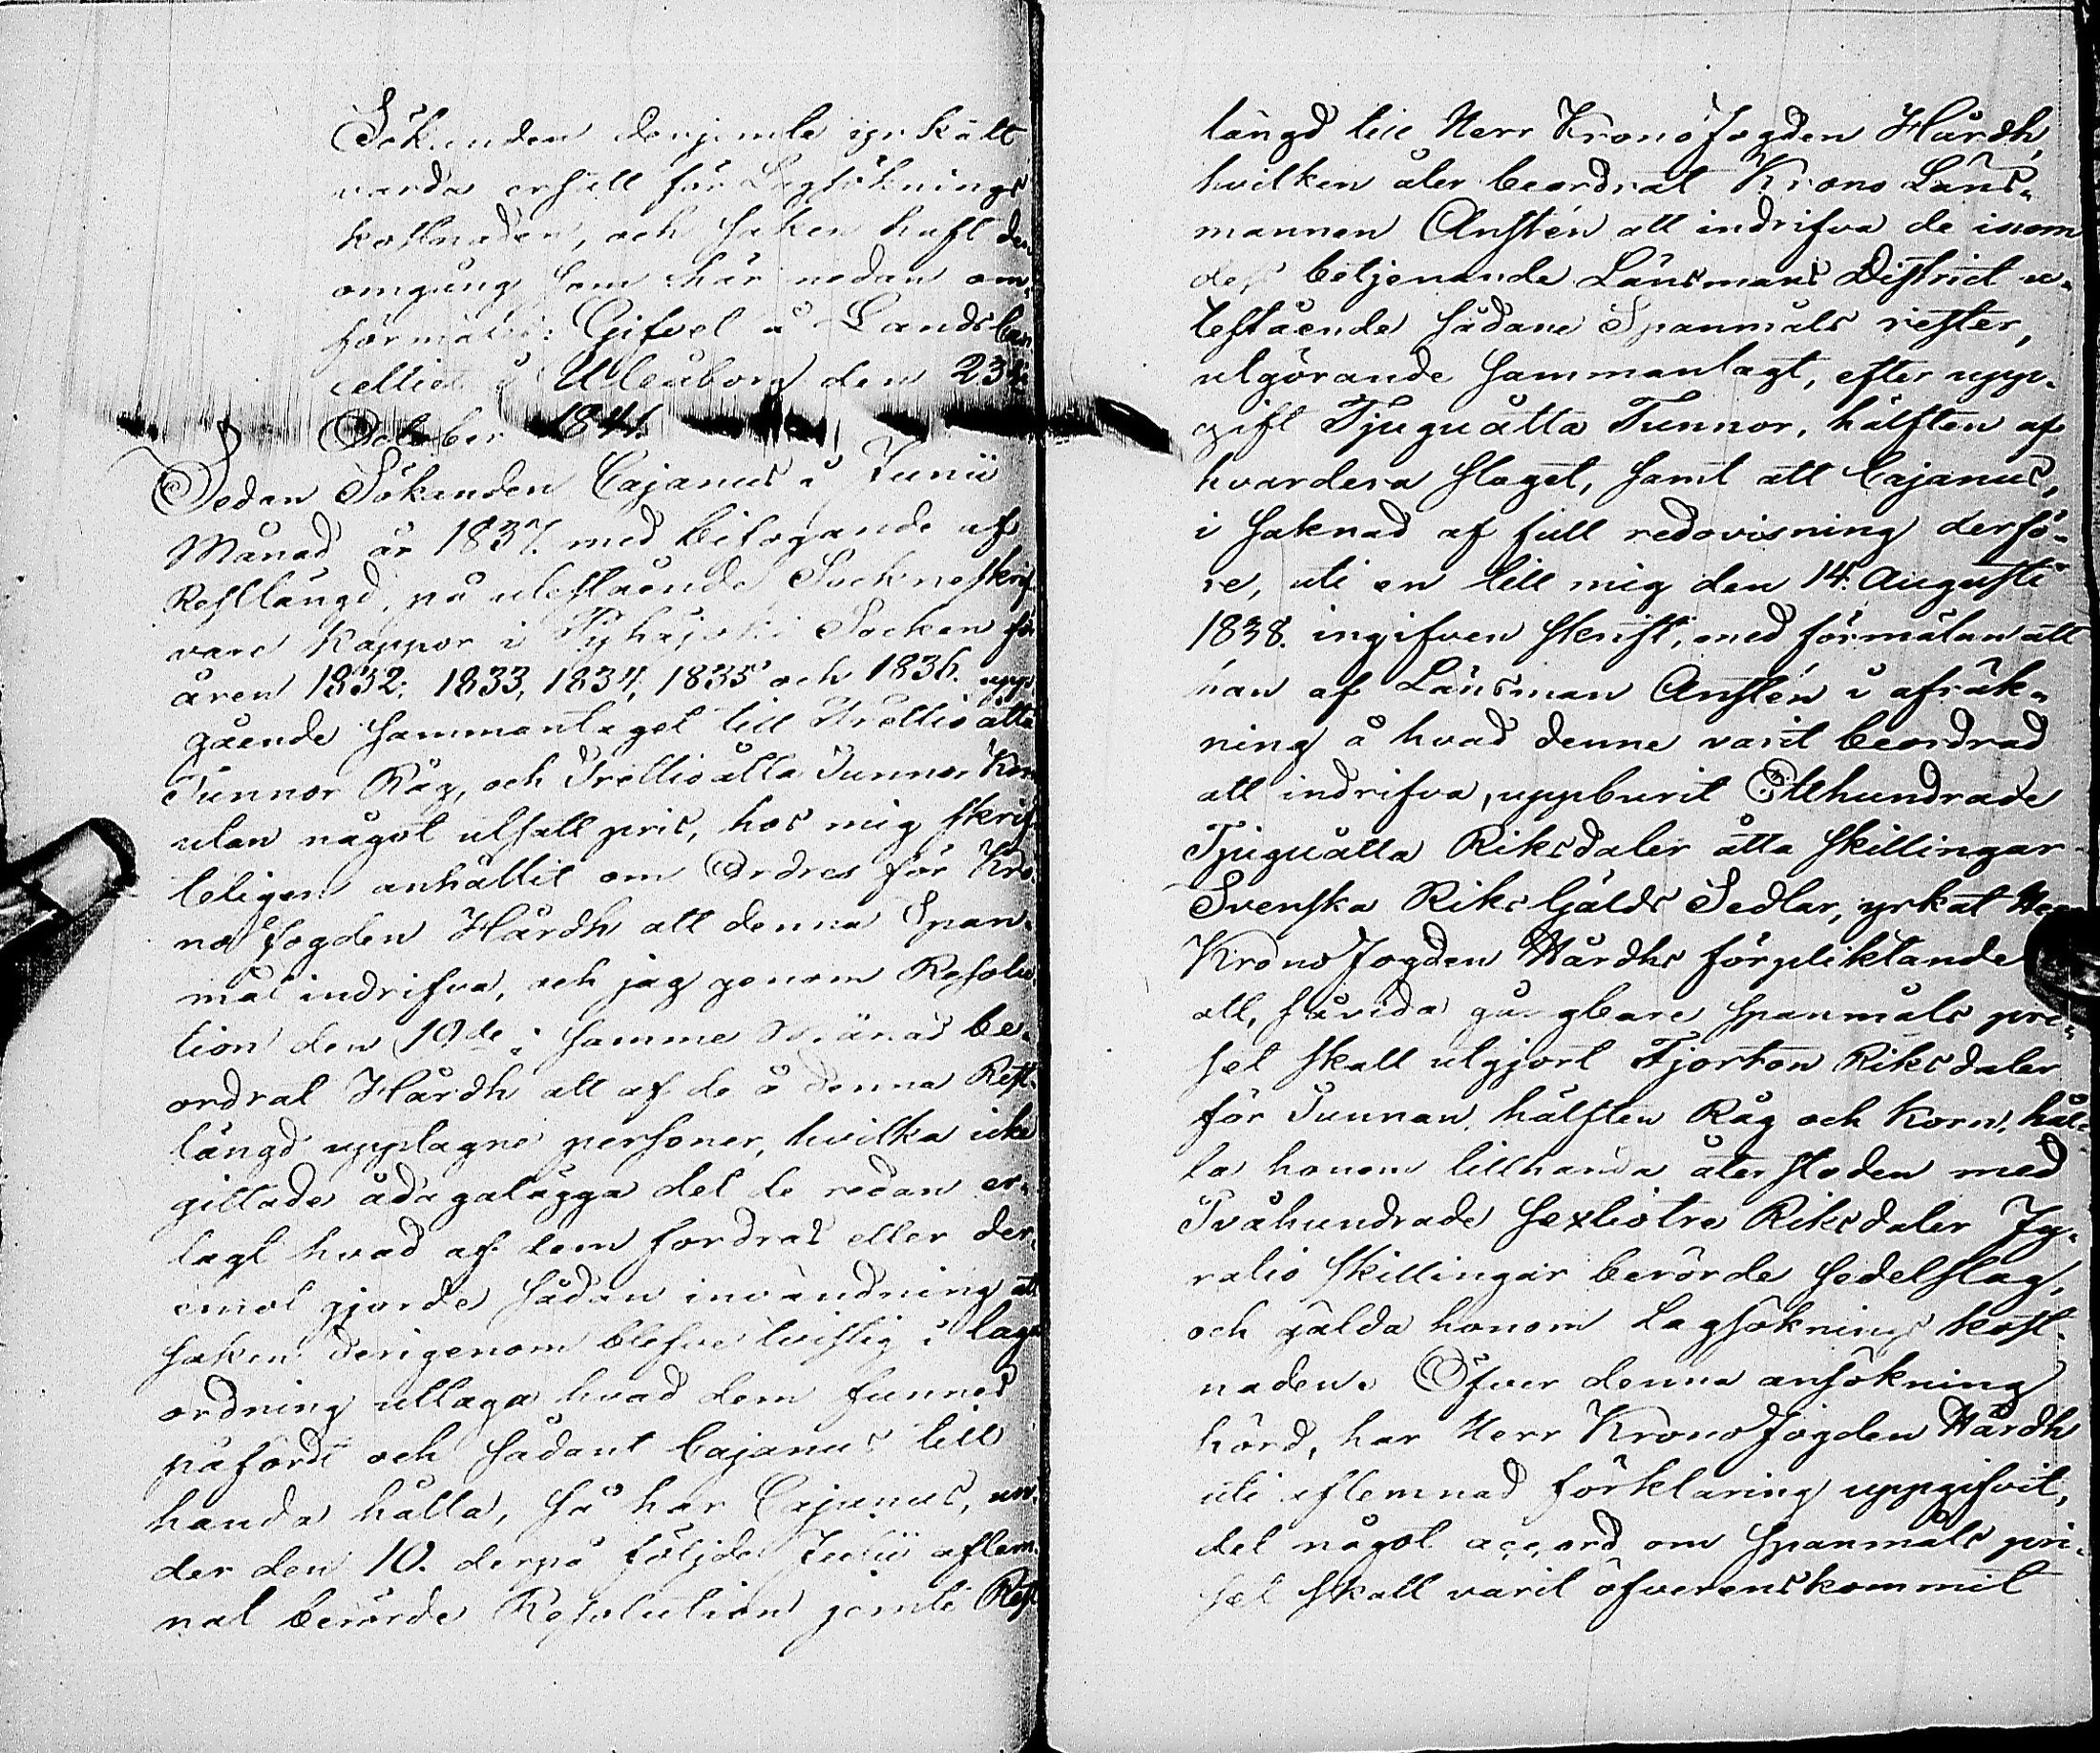 Sökanden derjemte yrkat
varda ersatt för Lagsöknings
kostnaden, och saken haft den
omgång som här nedan om-
förmäles: Gifvet å Lands Can
celliet i Uleåborg den 23
October 1841.
Sedan Sökanden Cajanus i Junii
Månad år 1837. med bifogande af
Restlängd, på utestående Sockneskrif-
vare Kappor i Pyhäjoki Socken för
åren 1832, 1833, 1834, 1835 och 1836. upp
gående sammantaget till Trettioåtta
Tunnor Råg, och Trettioåtta Tunnor Korn
utan något utsatt pris, hos mig skrif-
teligen anhållit om Ordres för Kro-
nofogden Hårdh att denna Span-
mål indrifva, och jag genom Resolu-
tion den 19de i samme Månad be-
ordrat Hårdh att af de å denna Rest-
längd upptagne personer, hvilka icke
gittade ådagalägga det de redan er-
lagt hvad af dem fordras eller der-
emot gjorde sådan invändning att
saken derigenom blefve tvistig i laga
ordning uttaga hvad dem funnes
påfördt och sådant Cajanus till
handa hålla, så har Cajanus, un-
der den 10. derpå följde Julii aflem-
nat berörde Resolution jemte Rest
längd till Herr Kronofogden Hårdh,
hvilken åter beordrat Krono Läns-
mannen Anstén att indrifva de inom
dess betjenande Länsmans District u-
testående sådane Spanmåls rester,
utgörande sammanlagt, efter upp-
gift Tjuguåtta Tunnor, hälften af
hvardera slaget, samt att Cajanus,
i saknad af full redovisning derfö-
re, uti en till mig den 14. Augusti
1838. ingifven skrift, med förmälan att
han af Länsman Anstén i afräk-
ning å hvad denne varit beordrad
att indrifva, uppburit Etthundrade
Tjuguåtta Riksdaler åtta skillingar
Svenska Riks Gälds Sedlar, yrkat Herr
Kronofogden Hårdhs förpliktande
att, såvida gångbare spanmåls pri-
set skall utgjort Fjorton Riksdaler
för Tunnan, hälften Råg och Korn, hål-
la honom tillhanda återstoden med
Tvåhundrade sextiotre Riksdaler Fy-
ratio skillingar berörde sedelslag,
och gälda honom Lagsöknings kost-
naden. Öfver denna ansökning
hörd, har Herr Kronofogden Hårdh
uti aflemnad förklaring uppgifvit,
det något accord om spanmåls pri-
set skall varit öfverenskommit